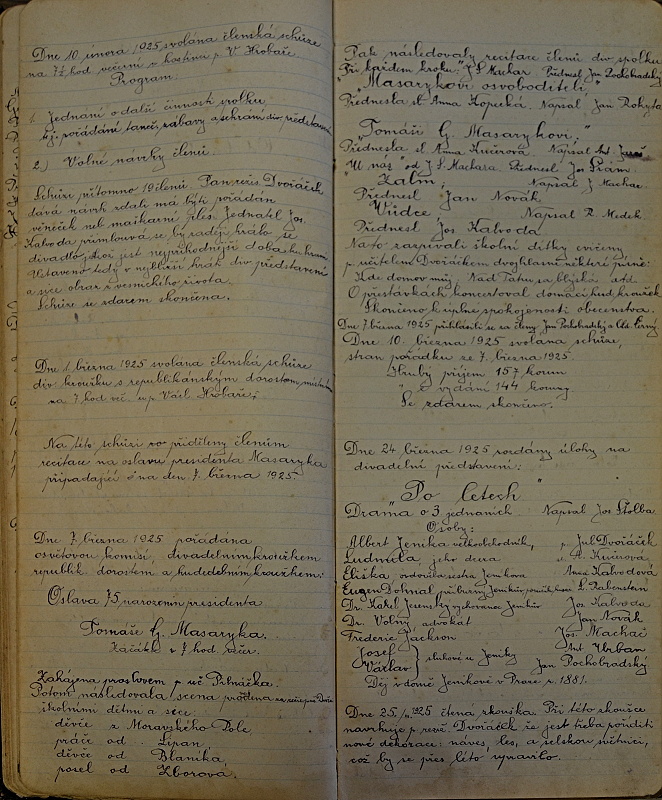 Dne 10 února 1925 svolána členská schůze
na 7½ hod večerní v hostinci p. V. Hrobaře.
Program:
1. Jednání o další činnosti spolku,
t.j. pořádání taneč. zábavy a sehrání div. představení
2.) Volné návrhy členů.
Schůzi přítomno 19 členů. Pan režis. Dvořáček
dává návrh zdali má býti pořádán
věneček neb maškarní ples. Jednatel Jos.
Kalvoda přimlouvá se, by raději hrálo se
divadlo, jest nejpříhodnější doba
Ustaveno tedy v nejbližší hrát div. představení
a sice obraz z vesnického života.
Schůze se zdarem skončena.
Dne 1. března 1925 svolána členská schůze
div. kroužku s republikánským dorostem,
na 7 hod več. u p. Václ. Hrobaře.
Na této schůzi přiděleny členům
recitace na oslavu presidenta Masaryka
připadající na den 7. března 1925.
Dne 7 března 1925 pořádána
osvětovou komisí, divadelním kroužkem
republik. dorostem a hudebním kroužkem:
Oslava 75 narozenin presidenta
Tomáše G. Masaryka.
Začátek v 7 hod. večer.
Zahájena proslovem p. uč.
Potom následovala scena
školními dětmi a sice:
děvče z Moravského Pole
práče od Lipan,
děvče od Blaníka,
posel od Zborova.
Pak následovaly recitace členů div. spolku
"Při každém kroku." J. S. Machar. Přednesl Jan Pochobradský
"Masarykovi osvoboditeli"
Přednesla sl. Anna Kopecká. Napsal Jan Rokyta
"Tomáši G. Masarykovi,"
Přednesla sl. Anna Kučerová. Napsal Ant.
"U nás" od J. S. Machara. Přednesl Jos.
Žalm, Napsal J. Machar
Přednesl Jan Novák
Vůdce Napsal R. Medek.
Přednesl Jos. Kalvoda
Na to zazpívali školní dítky cvičeny
p. učitelem Dvořáčkem dvoghlasně některé písně:
Kde domov můj, Nad Tatru sa blýská atd.
O přestávkách koncertoval domácí hud. kroužek
Skončeno k úplné spokojenosti obecenstva.
Dne 7 března 1925 přihlásili se za členy Jan Pochobradský a
Dne 10. března 1925 svolána schůze,
stran pořádku ze 7. března 1925.
Hrubý příjem 157 korun
" vydání 144 koruny
Se zdarem skončeno.
Dne 24 března 1925 rozdány úlohy na
divadelní představení:
"Po letech"
Drama o 3 jednáních Napsal Jos. Štolba.
Osoby:
Albert Jeník velkoobchodník, p. Jul. Dvořáček
Ludmila jeho dcera A. Kučerová
Eliška ovdovělá sestra Jeníkova Anna Kalvodová
Eugen Dohnal příbuzný Jeníkův L. Rabenstein
Dr. Karel Jesenský vychovanec Jeníkův Jos. Kalvoda
Dr. Volný advokát Jan Novák
Frederic Jackson Jos. Machač
Josef } sluhové u Jeníky Ant. Urban
Václav } Jan Pochobradský
Děj v domě Jeníkově v Praze r. 1881.
Dne 25./III. 1925 čtená zkouška. Při této zkoušce
navrhuje p. režis. Dvořáček že jest třeba poříditi
nové dekorace: náves, les, a selskou světnici,
což by se přes léto spravilo.